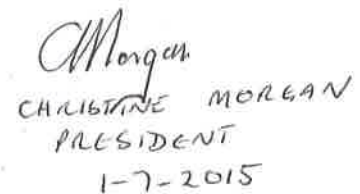 CMorgan
CHRISTINE MORGAN
PRESIDENT
1-7-2015